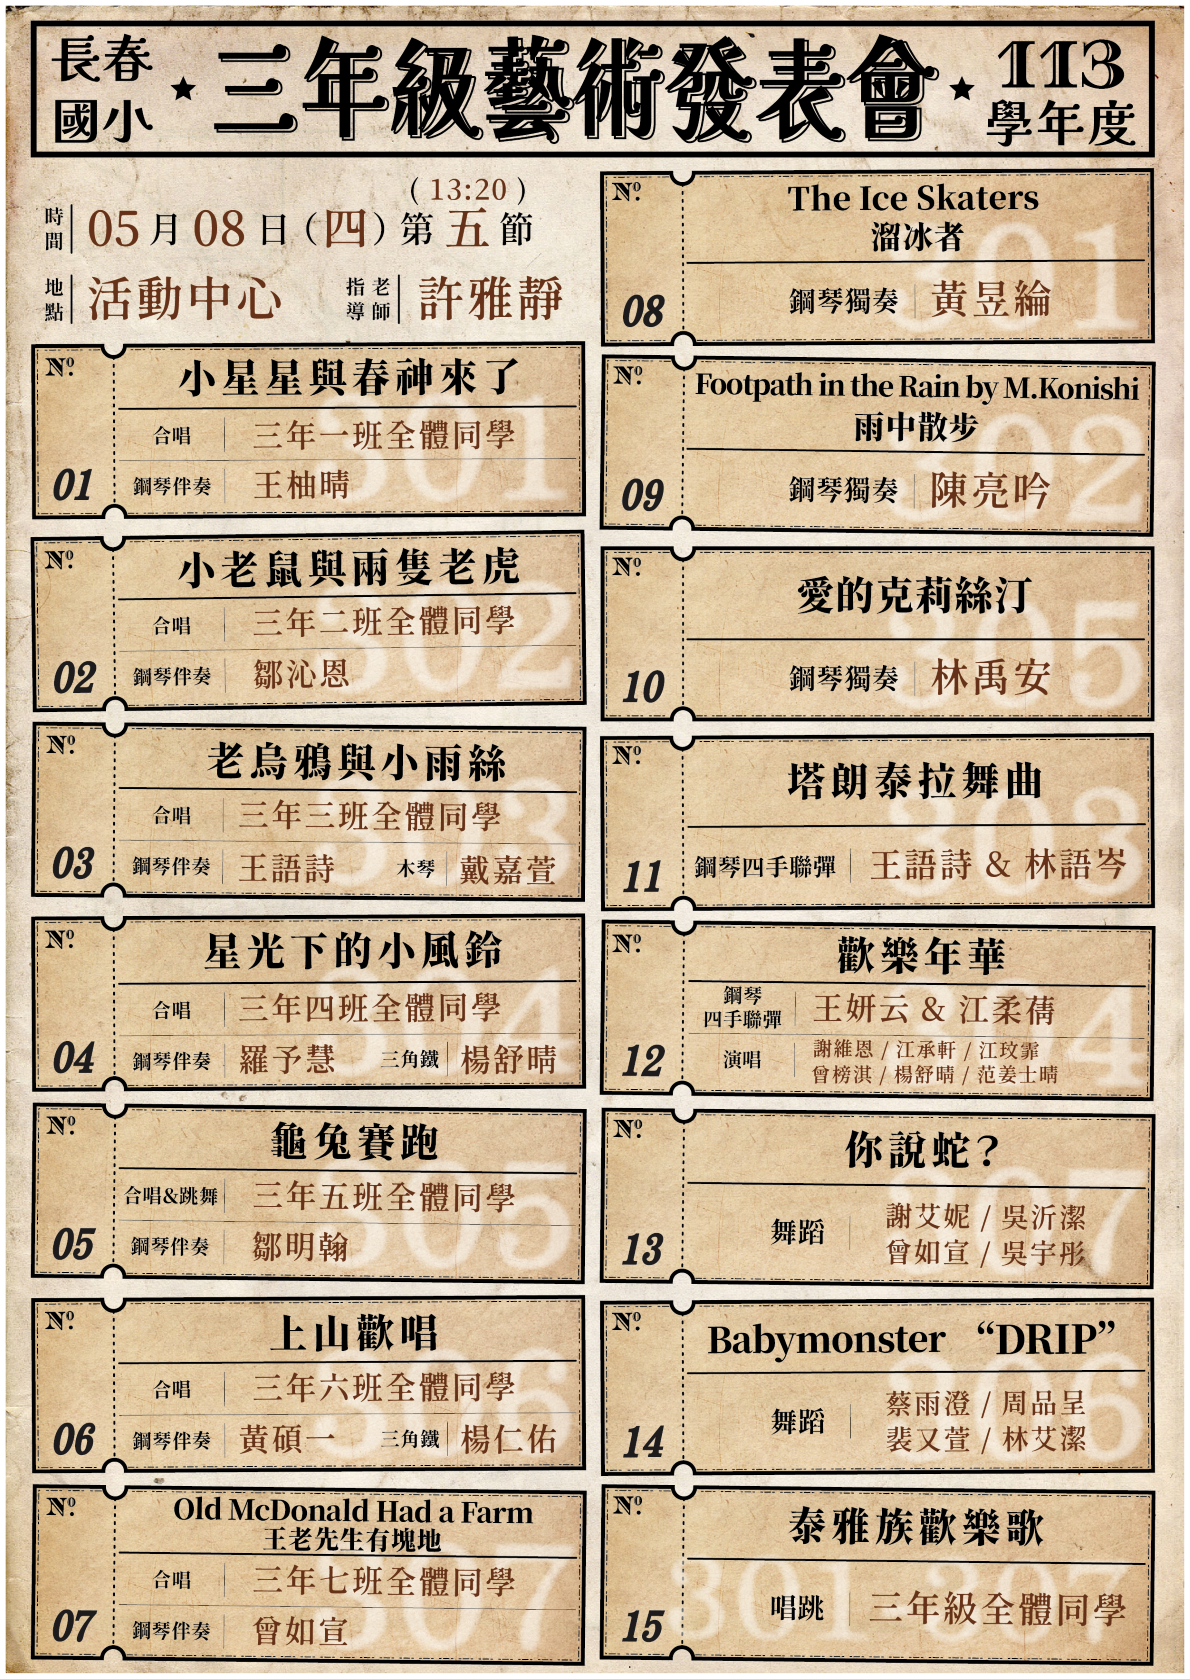 長春
國小
★三年級藝術發表會★
113
學年度
時間
(13:20)
05月08日(四)第五節
地點
活動中心
指導老師
許雅靜
Nº.
01
小星星與春神來了
301
合唱 三年一班全體同學
鋼琴伴奏 王柚晴
Nº.
02
小老鼠與兩隻老虎
302
合唱 三年二班全體同學
鋼琴伴奏 鄒沁恩
Nº.
03
老烏鴉與小雨絲
303
合唱 三年三班全體同學
鋼琴伴奏 王語詩 木琴 戴嘉萱
Nº.
04
星光下的小風鈴
304
合唱 三年四班全體同學
鋼琴伴奏 羅予慧 三角鐵 楊舒晴
Nº.
05
龜兔賽跑
305
合唱&跳舞 三年五班全體同學
鋼琴伴奏 鄒明翰
Nº.
06
上山歡唱
306
合唱 三年六班全體同學
鋼琴伴奏 黃碩一 三角鐵 楊仁佑
Nº.
07
Old McDonald Had a Farm
王老先生有塊地
307
合唱 三年七班全體同學
鋼琴伴奏 曾如宣
Nº.
08
The Ice Skaters
溜冰者
301
鋼琴獨奏 黃昱綸
Nº.
09
Footpath in the Rain by M.Konishi
雨中散步
302
鋼琴獨奏 陳亮吟
Nº.
10
愛的克莉絲汀
305
鋼琴獨奏 林禹安
Nº.
11
塔朗泰拉舞曲
303
鋼琴四手聯彈 王語詩 & 林語岑
Nº.
12
歡樂年華
304
鋼琴
四手聯彈 王妍云 & 江柔蒨
演唱 謝維恩 / 江承軒 / 江玟霏
曾榜淇 / 楊舒晴 / 范姜士晴
Nº.
13
你說蛇？
307
舞蹈 謝艾妮 / 吳沂潔
曾如宣 / 吳宇彤
Nº.
14
Babymonster “DRIP”
306
舞蹈 蔡雨澄 / 周品呈
裴又萱 / 林艾潔
Nº.
15
泰雅族歡樂歌
301-307
唱跳 三年級全體同學